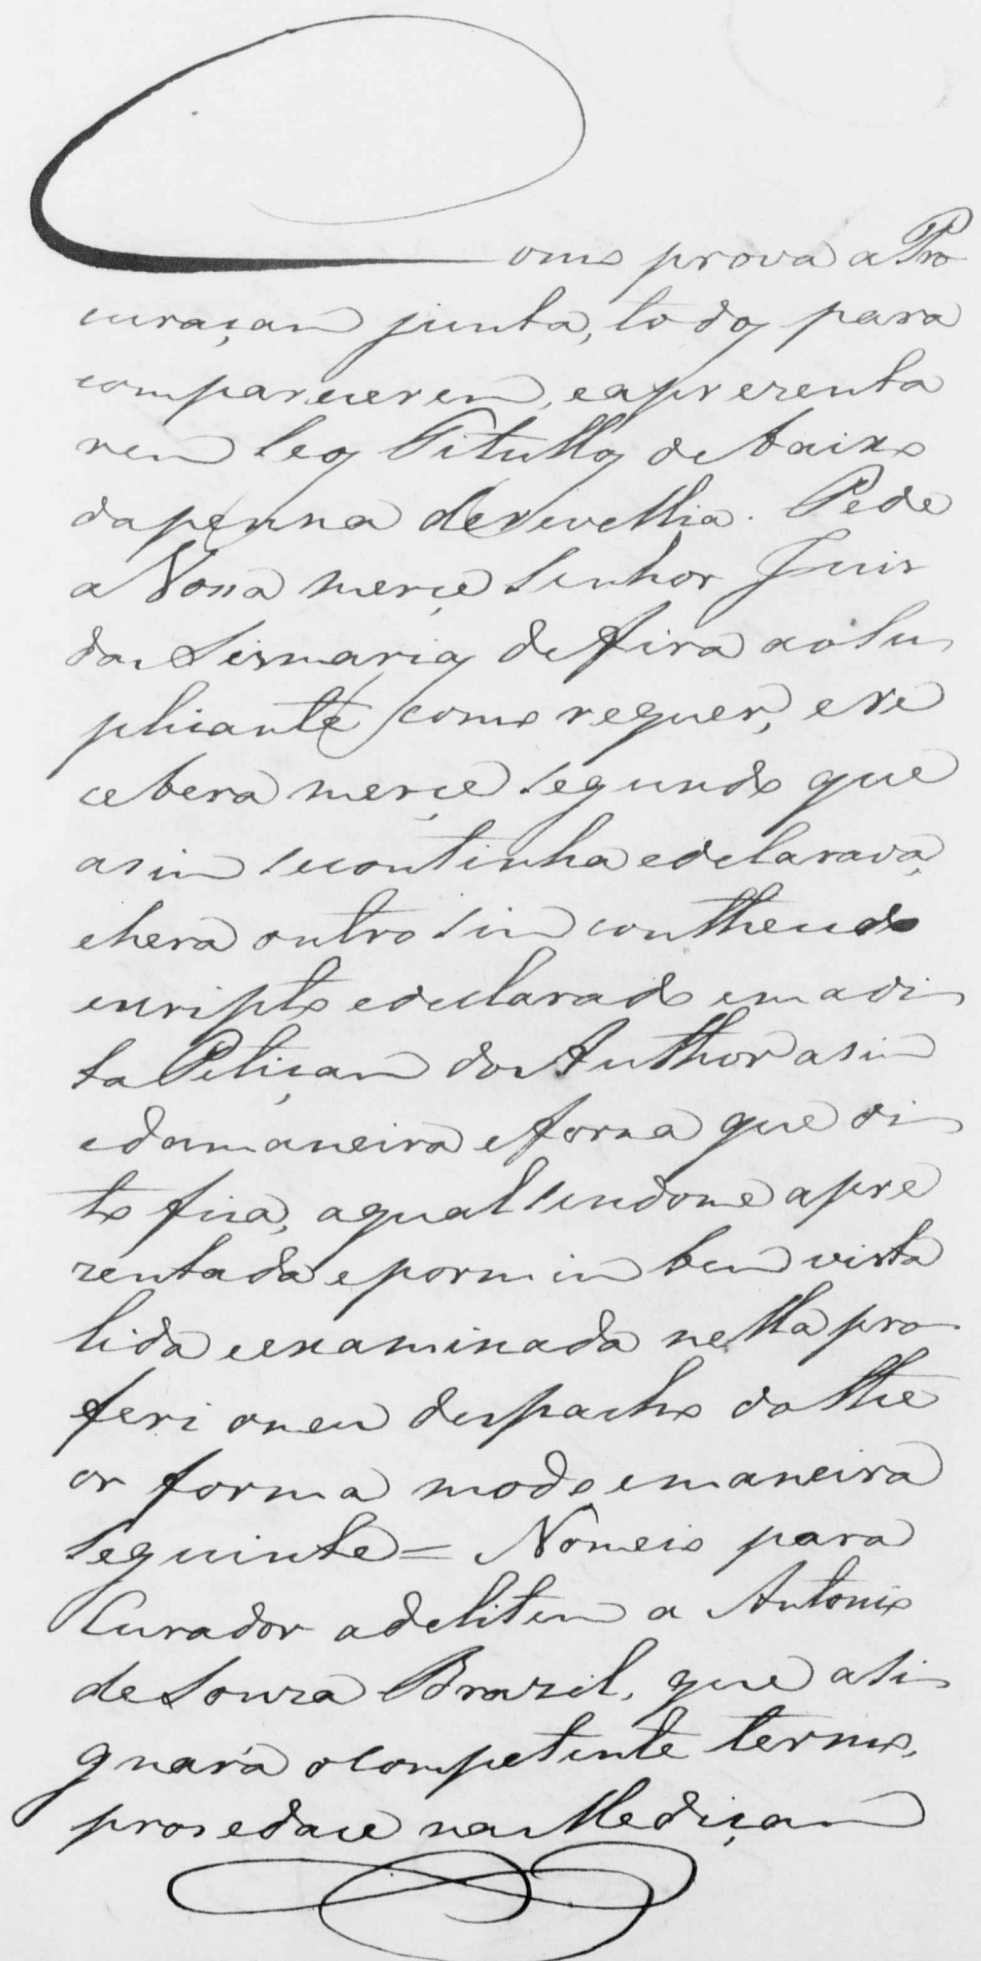 Como prova a Pro
curaçam junta, todos para
comparecerem, eaprezenta
rem seos Titullos debaixo
dapenna derevellia. Pede
a Vossa merçe Senhor Juis
das Sesmarias defira aoSu
plicante como requer, eRe
cebera merçe segundo que
asim secontinha edeclarava,
ehera outro sim contheudo
escripto edeclarado em adi
ta Petiçam do Author asim
edamaneira eforma que di
to fica, aqual sendome apre
zentada epormim bem vista
lida eexaminada nella pro
feri omeu despacho dothe
or forma modo emaneira
seguinte = Nomeio para
Curador adelitem a Antonio
deSouza Brazil, que asi
gnará oCompetente termo,
prosedace na Mediçam